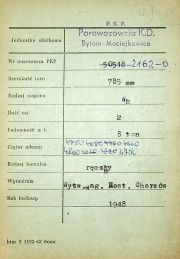 P. K. P.
Jednostka służbowa
Parowozownia K.D.
Bytom-Maciejkowice
Nr inwentarza PKP 50518 2162-0
Szerokość toru 785 mm
Rodzaj wagonu Wh
Ilość osi 2
Ładowność w t. 8 ton
Ciężar własny
Rodzaj hamulca ręczny
Wytwórnia Wytw. Wag. Most. Chorzów
Rok budowy 1948